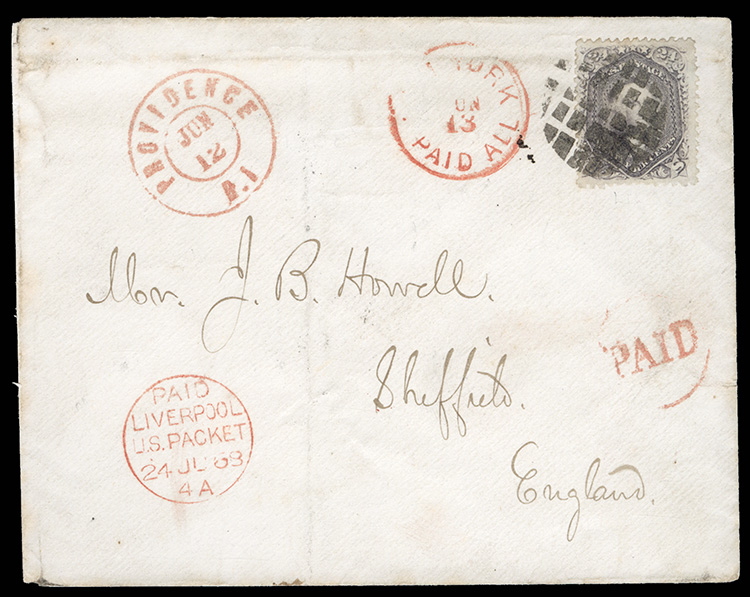 PROVIDENCE
JUN
12
R.I
YORK
13
PAID ALL
Mr. J. B. Howell.
Sheffield.
England.
PAID
PAID
LIVERPOOL
U.S. PACKET
24 JU 68
4 A